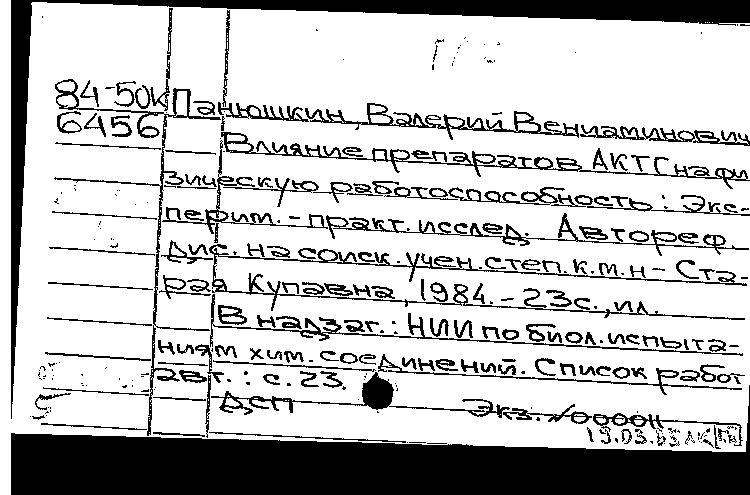 84-50к Панюшкин, Валерий Вениаминович
6456
Влияние препаратов АКТГ на фи-
зическую работоспособность: Экс-
перим.-практ. исслед. Автореф.
дис. на соиск. учен. степ. к.м.н - Ста-
рая Купавна, 1984. - 23с., ил.
В надзаг.: НИИ по биол. испыта-
ниям хим. соединений. Список работ
авт.: с. 23.
5
Дсп Экз. №00004